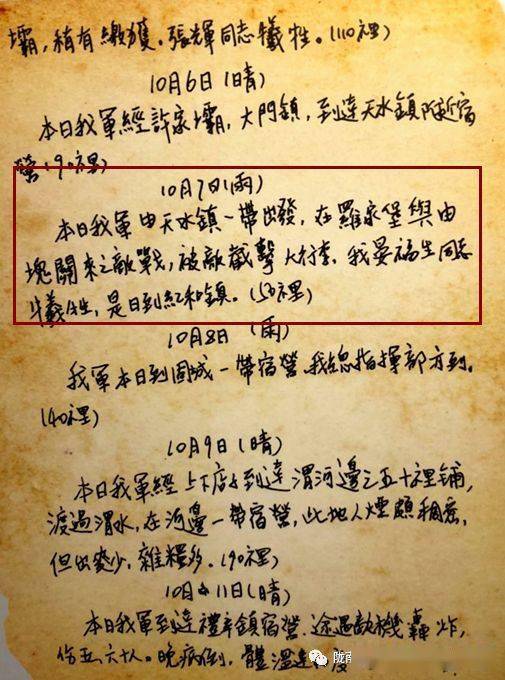 壩，稍有繳獲。張輝同志犧牲。(110裡)
10月6日(晴)
本日我軍經許家壩，大門鎮，到達天水鎮附近宿
營(90裡)
10月7日(雨)
本日我軍由天水鎮一帶出發，在羅家堡與由
塊關來之敵戰，被敵截擊大行李，我晏福生同志
犧牲，是日到紅和鎮。(50裡)
10月8日 (雨)
我軍本日到固城一帶宿營，我總指揮部方到。
(40裡)
10月9日(晴)
本日我軍經上下店子到達渭河邊之五十裡鋪，
渡過渭水，在河邊一帶宿營，此地人煙頗稠密，
但出麥少，雜糧多。(90裡)
10月11日(晴)
本日我軍到達禮辛鎮宿營，途遇敵機轟炸，
伤五六十人。晚病倒，體溫達
陇南